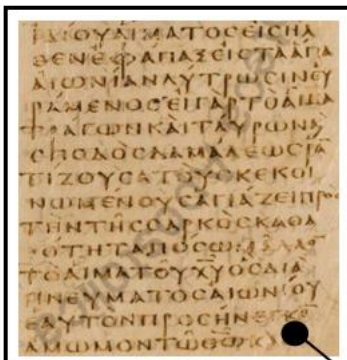 ΙΔΙΟΥΑΙΜΑΤΟCΕΙCΗΛ
ΘΕΝΕΦΑΠΑΞΕΙCΤΑΑΓΙΑ
ΑΙΩΝΙΑΝΛΥΤΡΩCΙΝΕΥ
ΡΑΜΕΝΟCΕΙΓΑΡΤΟΑΙΜΑ
ΤΡΑΓΩΝΚΑΙΤΑΥΡΩΝΚ
CΠΟΔΟCΔΑΜΑΛΕΩCΡΑ
ΤΙΖΟΥCΑΤΟΥCΚΕΚΟΙ
ΝΩΜΕΝΟΥCΑΓΙΑΖΕΙΠΡΟ
ΤΗΝΤΗCCΑΡΚΟCΚΑΘΑ
ΡΟΤΗΤΑΠΟCΩΜΑΛΛΟ
ΤΟΑΙΜΑΤΟΥΧΥΟCΔΙΑ
ΠΝΕΥΜΑΤΟCΑΙΩΝΙΟΥ
ΕΑΥΤΟΝΠΡΟCΗΝΕΓΚΕ
ΑΜΩΜΟΝΤΩΘΕΩ